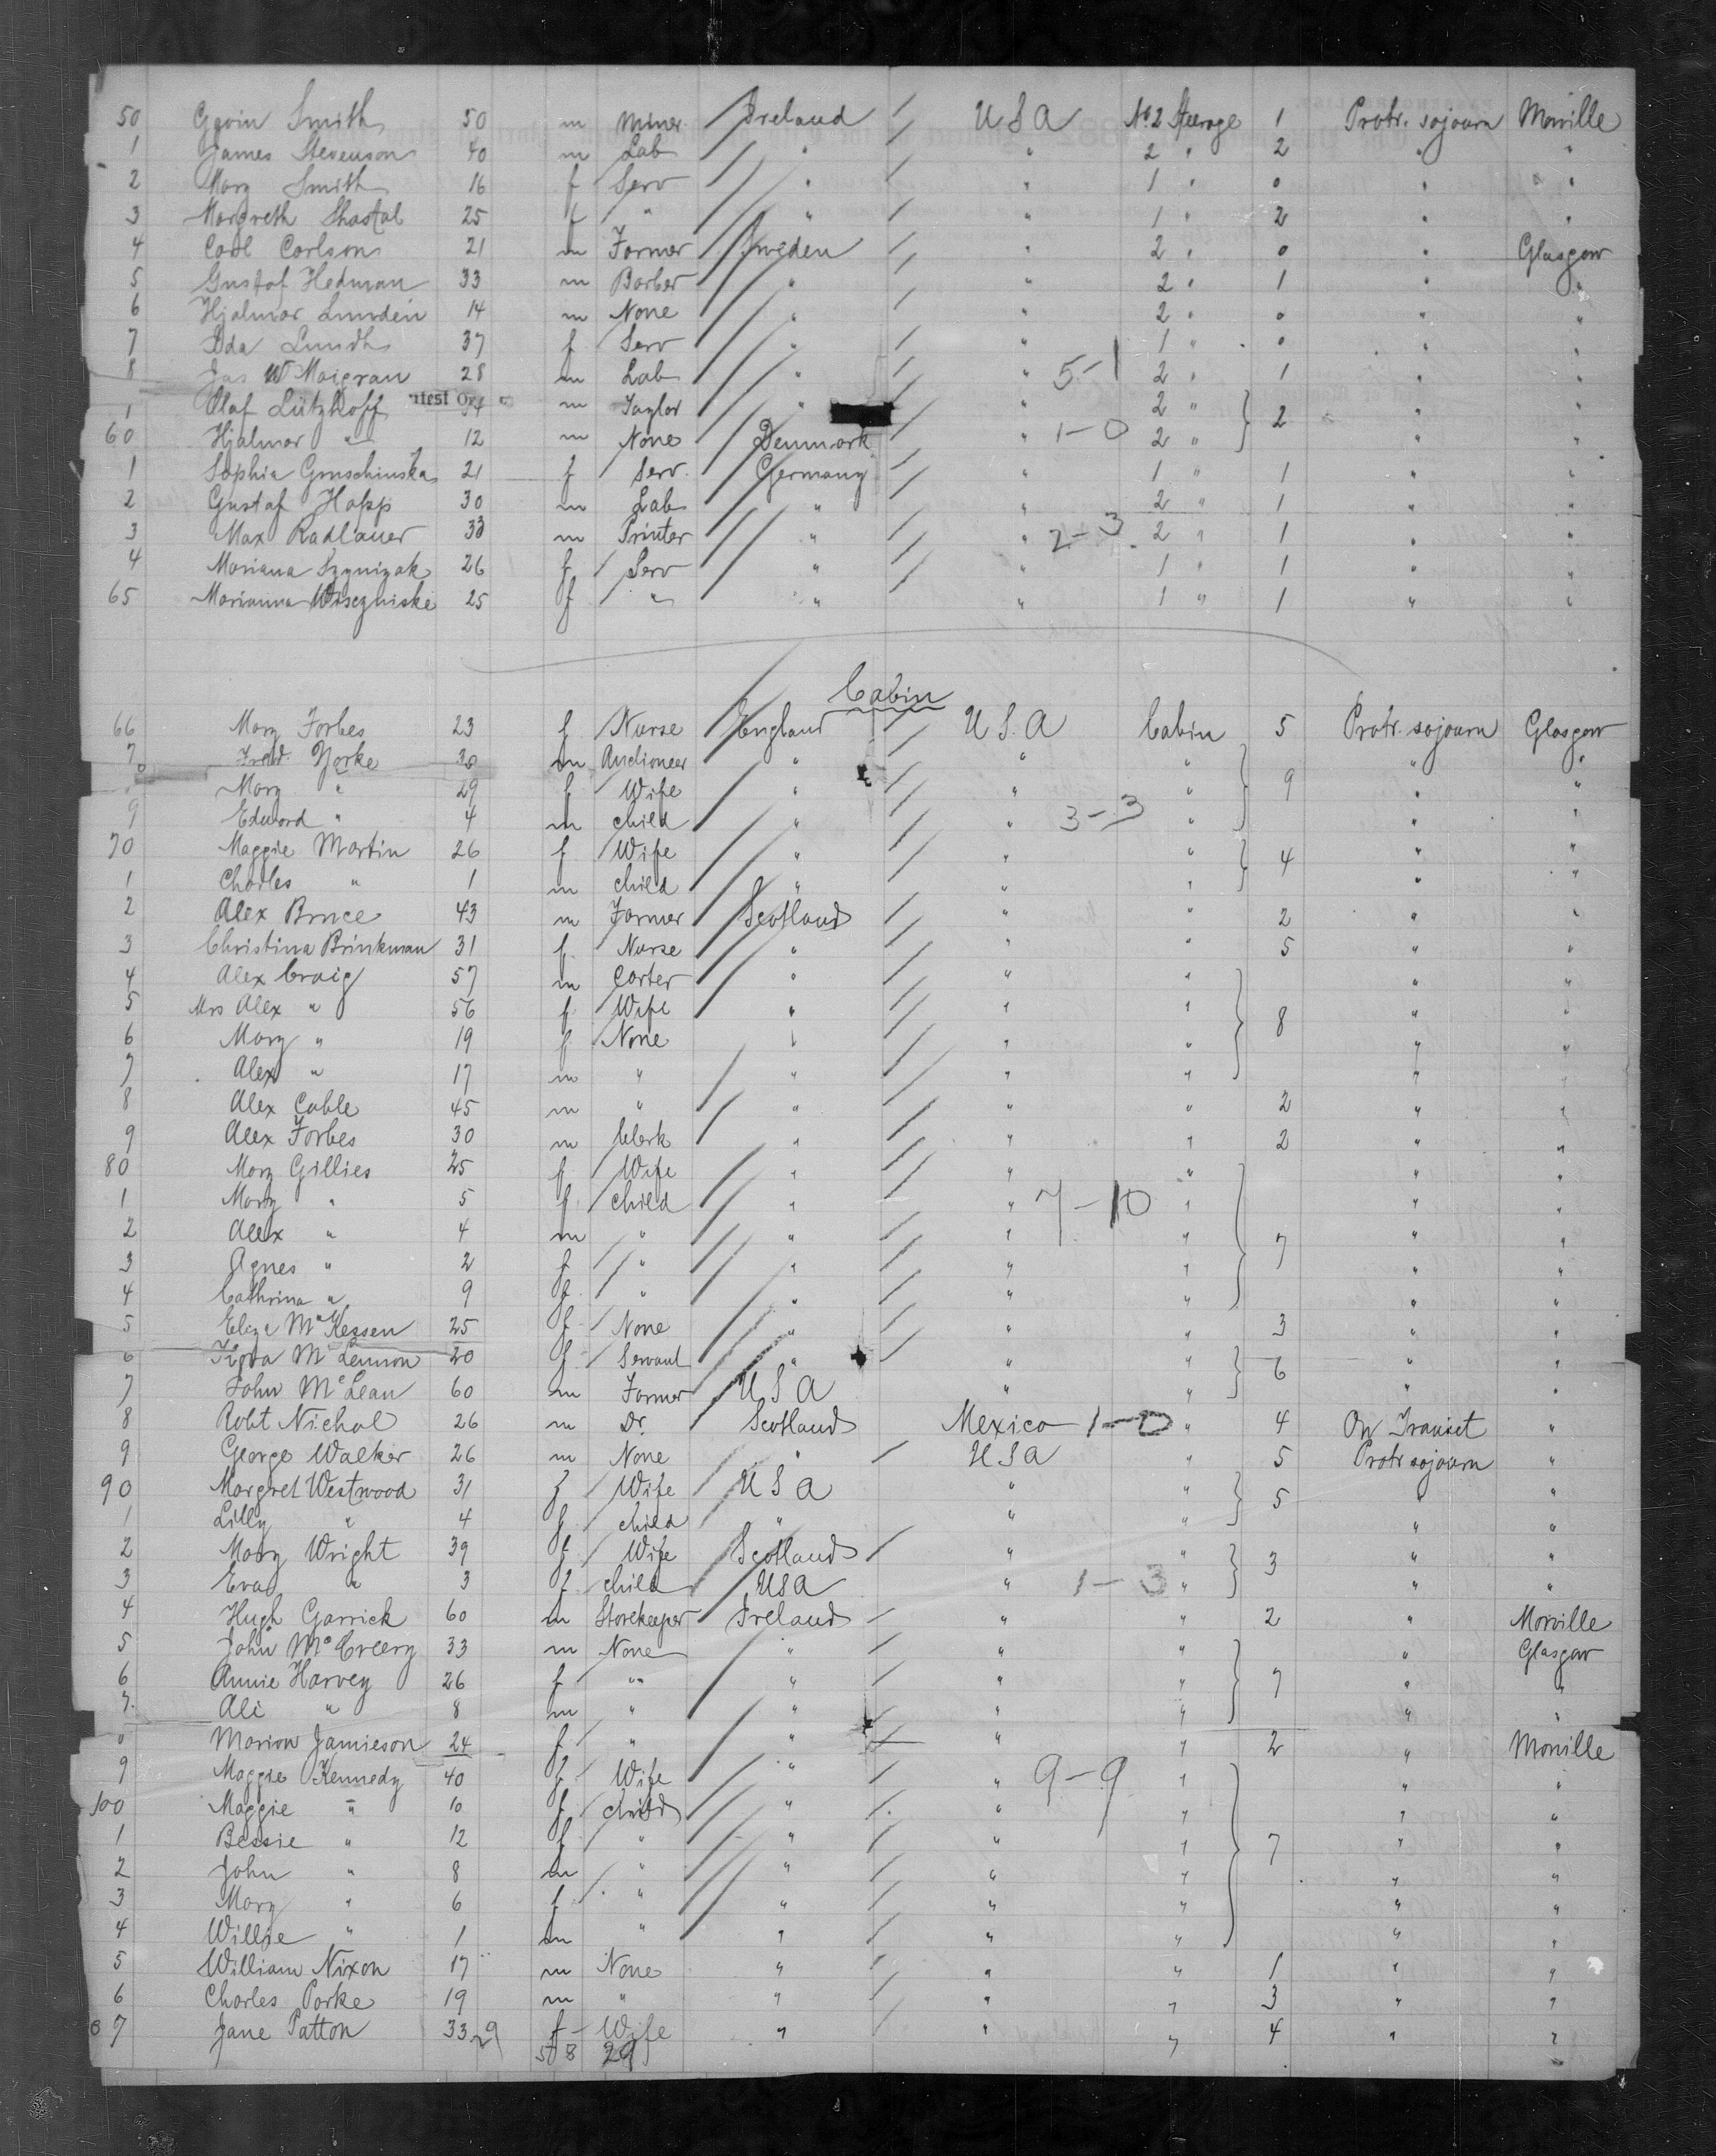 50 Gavin Smith 50 m Miner Ireland / U S A No 2 Steerage 1 Protr. sojourn Moville
1 James Stevenson 40 m Lab " / " 2 " 2 " "
2 Mary Smith 16 f Serv " / " 1 " 0 " "
3 Margreth Shastal 25 f " " / " 1 " 2 " "
4 Carl Carlson 21 m Farmer Sweden / " 2 " 0 " Glasgow
5 Gustaf Hedman 33 m Barber " / " 2 " 1 " "
6 Hjalmar Lunden 14 m None " / " 2 " 0 " "
7 Ida Lundh 37 f Serv " / " 1 " 0 " "
8 Jas W Maigran 28 m Lab " / " 5-1 2 " 1 " "
1 Olaf Lützhoff 34 m Taylor " / 2 " 2 " "
60 Hjalmar " 12 m None Denmark / " 1-0 2 " " "
1 Sophia Gruschinska 21 f Serv. Germany / 1 " 1 " "
2 Gustaf Hopp 30 m Lab " / " 2 " 1 " "
3 Max Radlauer 33 m Printer " / " 2-3 2 " 1 " "
4 Mariana Szynizak 26 f Serv " / " 1 " 1 " "
65 Marianna Wisczniske 25 f " " " 1 " 1 " "
Cabin
66 Mary Forbes 23 f Nurse England / U.S.A Cabin 5 Protr. sojourn Glasgow
7 Fred. Yorke 30 m Auctioneer " / " " " "
Mary " 29 f Wife " / " " 9 " "
9 Edward " 4 m child " / " 3-3 " " "
70 Maggie Martin 26 f Wife " / " " 4 " "
1 Charles " 1 m child " / " " " "
2 Alex Bruce 43 m Farmer Scotland / " " 2 " "
3 Christina Brinkman 31 f Nurse " / " " 5 " "
4 Alex Craig 57 m Carter " / " " " "
5 Mrs Alex " 56 f Wife " / " " " "
6 Mary " 19 f None " / " " 8 " "
7 Alex " 17 m " " / " " " "
8 Alex Cable 45 m " " / " " 2 " "
9 Alex Forbes 30 m Clerk " / " " 2 " "
80 Mary Gillies 25 f Wife " / " " " "
1 Mary " 5 f child " / " 7-10 " " "
2 Alex " 4 m " " / " " 7 " "
3 Agnes " 2 f " " / " " " "
4 Cathrina " 9 f " " / " " " "
5 Eliza McKessen 25 f None " / " " 3 " "
6 McLennon 20 f Servant " / " " 6 " "
7 John McLean 60 m Farmer U S A " " " "
8 Robt Nichol 26 m Dr. Scotland Mexico 1-0 " 4 On Transet "
9 George Walker 26 m None " / U S A " 5 Protr sojourn "
90 Margret Westwood 31 f Wife U S A " " 5 " "
1 Lilly " 4 f child " " " " "
2 Mary Wright 39 f Wife Scotland / " " 3 " "
3 Eva " 3 f child USA " 1-3 " " "
4 Hugh Garrick 60 m Storekeeper Ireland / " " 2 " Moville
5 John McCreery 33 m None " / " " " Glasgow
6 Annie Harvey 26 f " " / " " 7 " "
7 Ali " 8 m " " / " " " "
Marion Jamieson 24 f " " / " " 2 " Moville
9 Maggie Kennedy 40 f Wife " / " 9-9 " " "
100 Maggie " 10 f child " / " " " "
1 Bessie " 12 f " " / " " 7 " "
2 John " 8 m " " / " " " "
3 Mary " 6 f " " / " " " "
4 Willie " 1 m " " / " " " "
5 William Nixon 17 m None " / " " 1 " "
6 Charles Porke 19 m " " / " " 3 " "
7 Jane Patton 33 29 f Wife " " " 4 " "
58 29